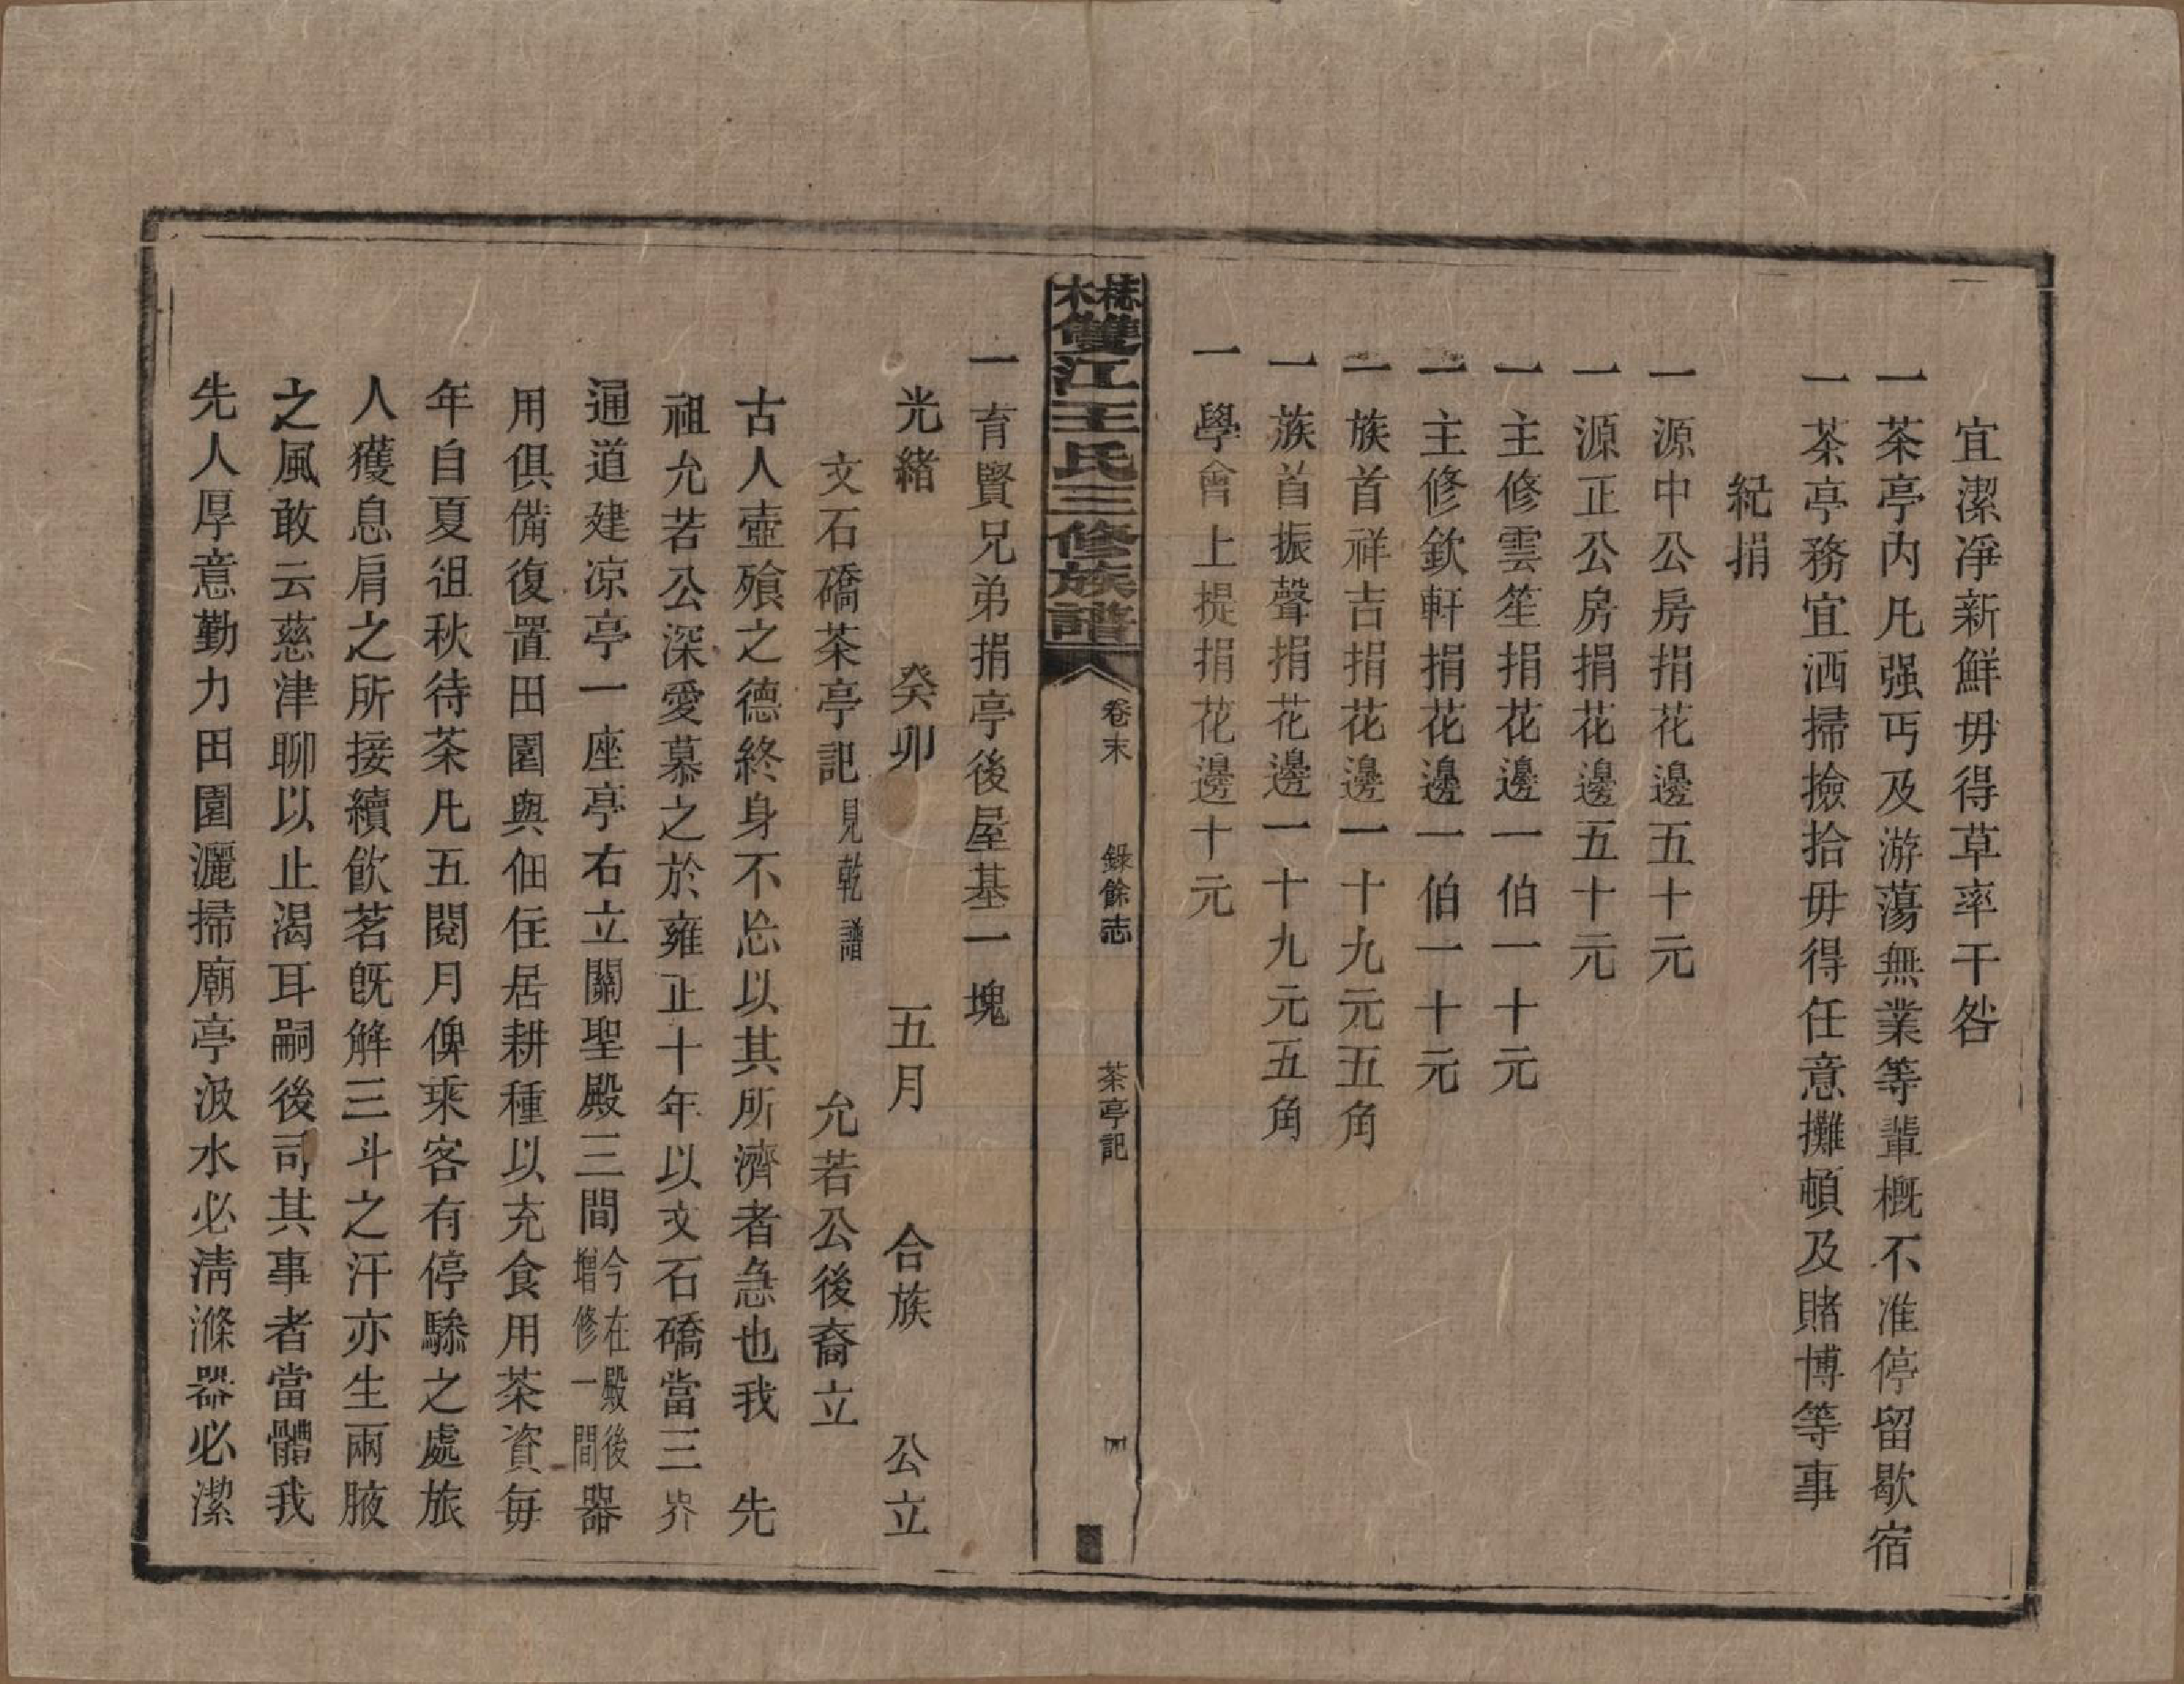 宜潔凈新鮮毋得草率干咎
一茶亭內凡强丐及游蕩無業等輩概不准停留歇宿
一茶亭務宜洒掃撿拾毋得任意攤頓及賭博等事
紀捐
一源中公房捐花邊五十元
一源正公房捐花邊五十元
一主修雲笙捐花邊一伯一十元
一主修欽軒捐花邊一伯一十元
一族首祥吉捐花邊一十九元五角
一族首振聲捐花邊一十九元五角
一學會上提捐花邊十元
雙江王氏三修族譜 卷末 錄餘志 茶亭記 四
一育賢兄弟捐亭後屋基一塊
光緒 癸卯 五月 合族 公立
文石礄茶亭記見乾譜 允若公後裔立
古人壺飱之德終身不忘以其所濟者急也我 先
祖允若公深愛慕之於雍正十年以文石礄當三界
通道建凉亭一座亭右立關聖殿三間今在殿後增修一間器
用俱備復置田園與佃住居耕種以充食用茶資每
年自夏徂秋待茶凡五閱月俾乘客有停驂之處旅
人獲息肩之所接續飲茗旣解三斗之汗亦生兩腋
之風敢云慈津聊以止渴耳嗣後司其事者當體我
先人厚意勤力田園灑掃廟亭汲水必清滌器必潔